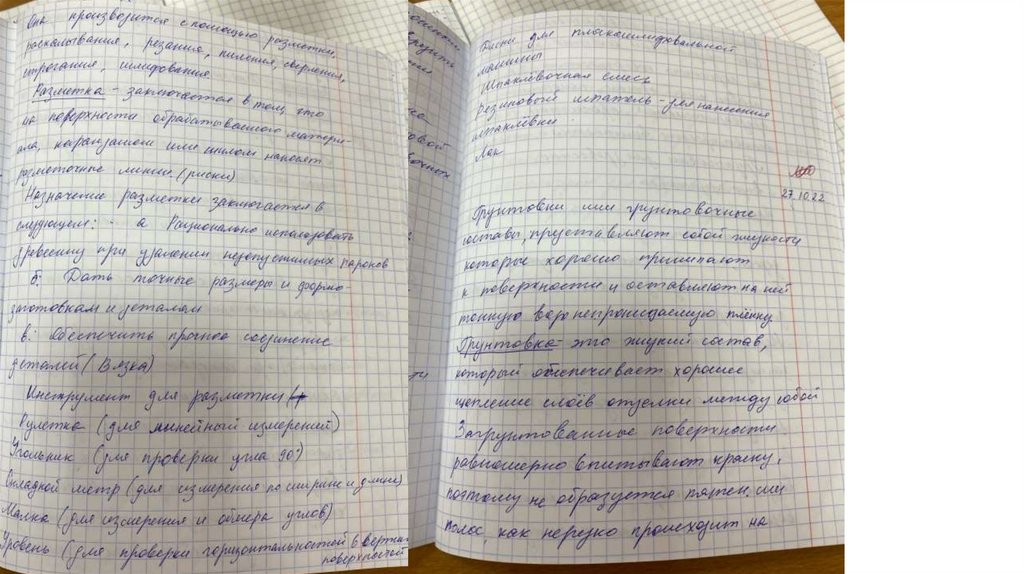 Она производится с помощью разметки,
раскалывания, резания, пиления, сверления,
строгания, шлифования.
Разметка - заключается в том, что
на поверхности обрабатываемого матери-
ала, карандашом или шилом наносят
разметочные линии. (риски)
Назначение разметки заключается в
следующем: - а Рационально использовать
древесину при удалении недопустимых пароков
б: Дать точные размеры и форму
заготовкам и деталям
в: Обеспечить прочное соединение
деталей (Вязка)
Инструмент для разметки
Рулетка (для линейный измерений)
Угольник (для проверки угла 90°)
Складной метр (для измерения по ширине и длине)
Малка (для измерения и обмера углов)
Уровень (для проверки горизонтальностей в вертик
поверхностей
Диски для плоскошлифовальной
машины
Шпаклёвочная смесь
Резиновый шпатель - для нанесения
шпаклёвки
Лак
27.10.22
Грунтовки или грунтовочные
составы, представляют собой жидкости
которые хорошо прилипают
к поверхности и оставляют на ней
тонкую водонепроницаемую плёнку.
Грунтовка - это жидкий состав,
который обеспечивает хорошее
щепление слоёв отделки между собой
Загрунтованные поверхности
равномерно впитывают краску,
поэтому не образуется пятен. или
полос, как нередко происходит на